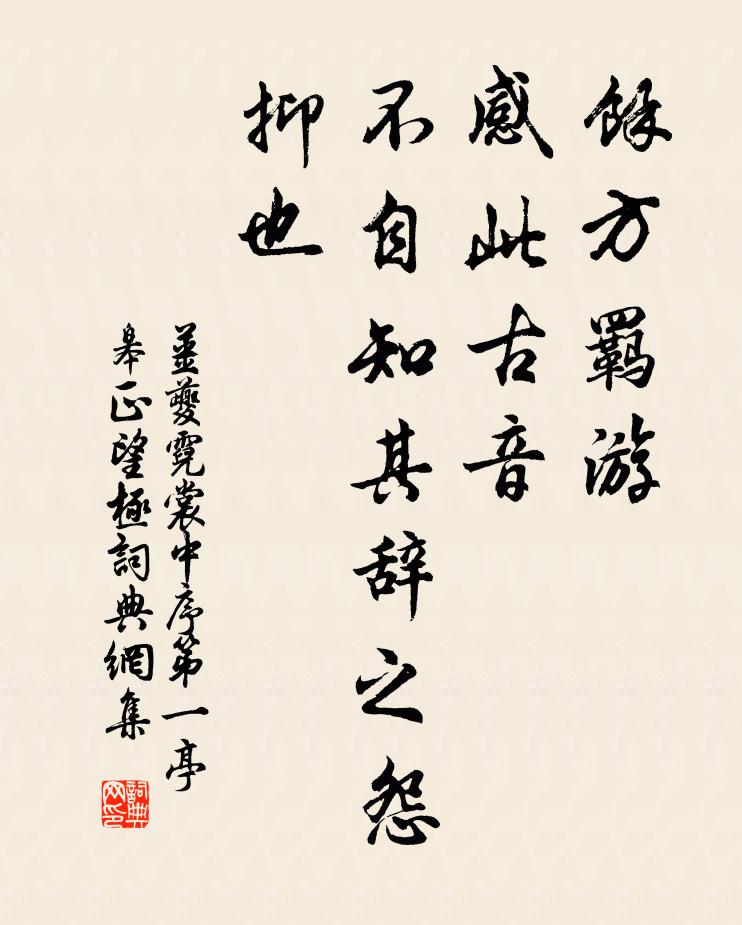 餘方羈游
感此古音
不自知其辞之怨
抑也
姜夔霓裳中序第一亭
皋正望極詞典網集
詞典网印